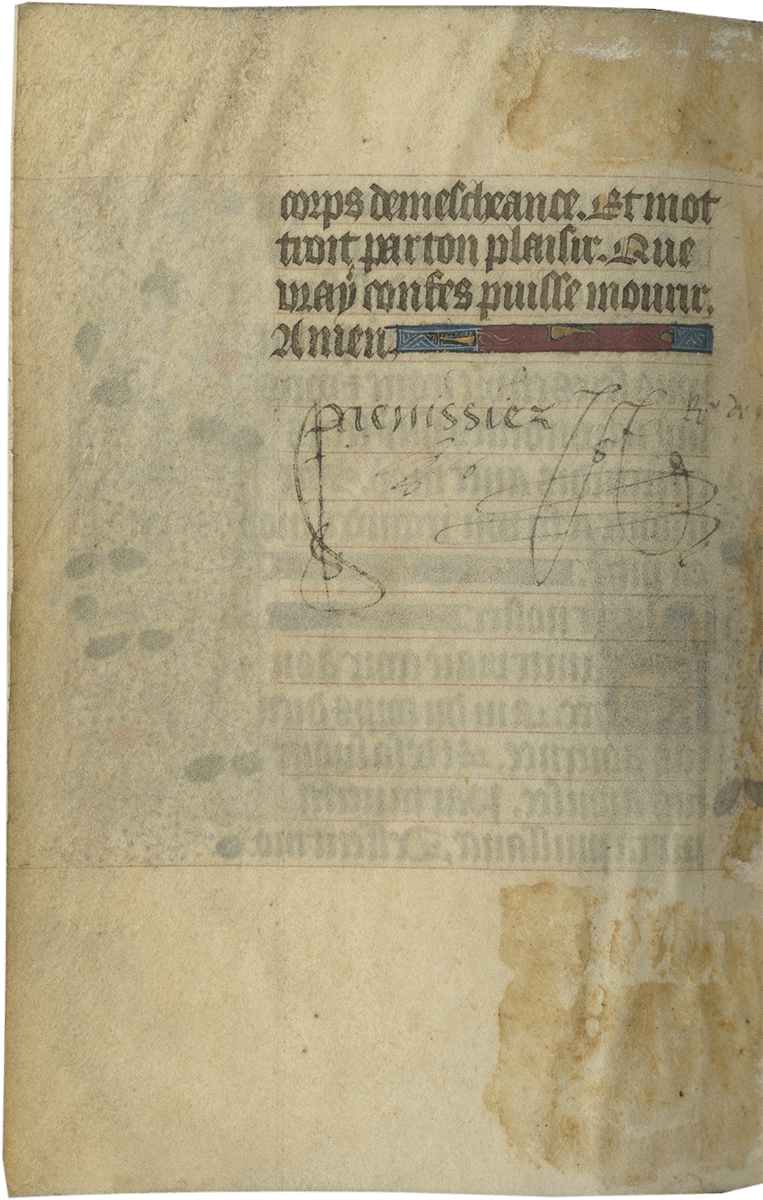 corps de mescheance. Et mot
troit par ton plaisir. Que
vray confes puisse mourir.
Amen.
prenissiez